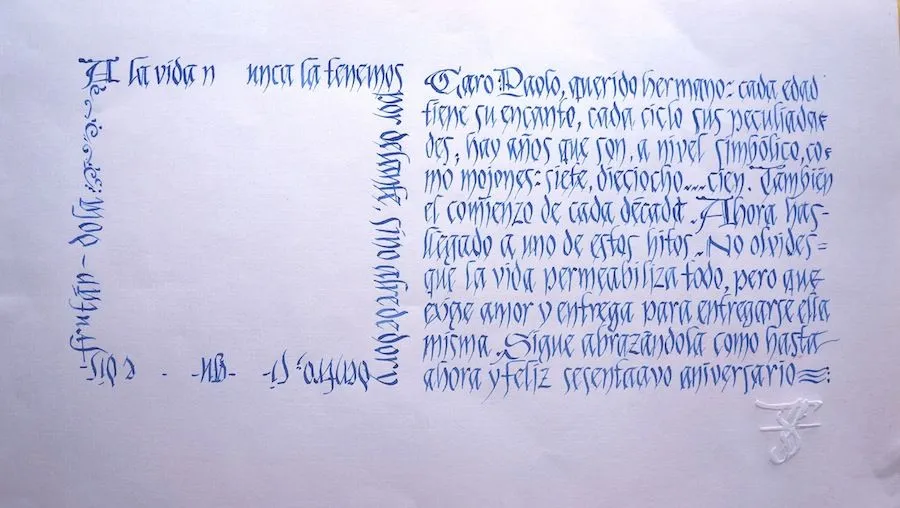 A la vida n unca la tenemos
por delante, sino alrededor y
dentro; Si- -gu- - e dis-
-frután-dola.
Caro Paolo, querido hermano: cada edad
tiene su encanto, cada ciclo sus peculiarida=
des; hay años que son, a nivel simbólico, co=
mo mojones: siete, dieciocho....cien. También
el comienzo de cada década. Ahora has-
llegado a uno de estos hitos. No olvides=
que la vida permeabiliza todo, pero que
exige amor y entrega para entregarse ella
misma. Sigue abrazándola como hasta
ahora y feliz sesentaavo aniversario